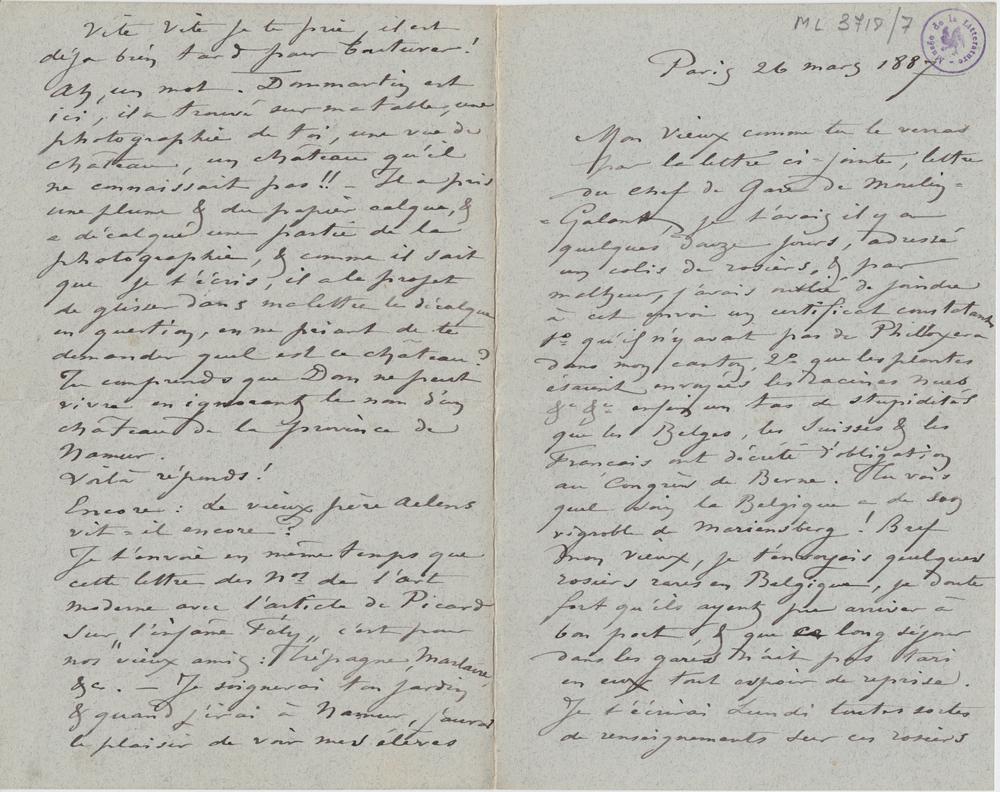 ML 3718/7
Musée de la Littérature
Paris 26 mars 1887
Mon vieux comme tu le verras
par la lettre ci-jointe, lettre
du chef de Gare de Moulin-
-Galant, je t'avais il y a
quelques douze jours, adressé
un colis de rosiers, & par
malheur, j'avais oublié de joindre
à cet envoi un certificat constatant
1º qu'il n'y avait pas de Philloxera
dans mon canton, 2º que les plantes
étaient envoyées les racines nues
&ª &ª enfin un tas de stupidités
que les Belges, les Suisses & les
Français ont décrété d'obligation
au Congrès de Berne. Tu vois
quel soin la Belgique a de son
vignoble de Mariensberg ! Bref
mon vieux, je t'envoyais quelques
rosiers rares en Belgique, je doute
fort qu'ils ayent pu arriver à
bon port & que ce long séjour
dans les gares n'ait pas tari
en eux tout espoir de reprise.
Je t'écrirai Lundi toutes sortes
de renseignements sur ces rosiers
Vite Vite je te prie, il est
déja bien tard pour
Ah, un mot. Dommartin est
ici, il a trouvé sur ma table, une
photographie de toi, une vue de
château, un château qu'il
ne connaissait pas !! — Il a pris
une plume & du papier calque, &
a décalqué une partie de la
photographie, & comme il sait
que je t'écris, il a le projet
de glisser dans ma lettre le décalque
en question, en me priant de te
demander quel est ce château ?
Tu comprends que Dom ne peut
vivre en ignorant le nom d'un
château de la province de
Namur.
Voilà réponds !
Encore : Le vieux père Aelens
vit-il encore ?
Je t'envoie en même temps que
cette lettre des Nos de l'art
moderne avec l'article de Picard
sur "l'infâme Fély" c'est pour
nos vieux amis : Trépagne,
&a. — Je soignerai ton jardin
& quand j'irai à Namur, j'aurai
le plaisir de voir mes élèves